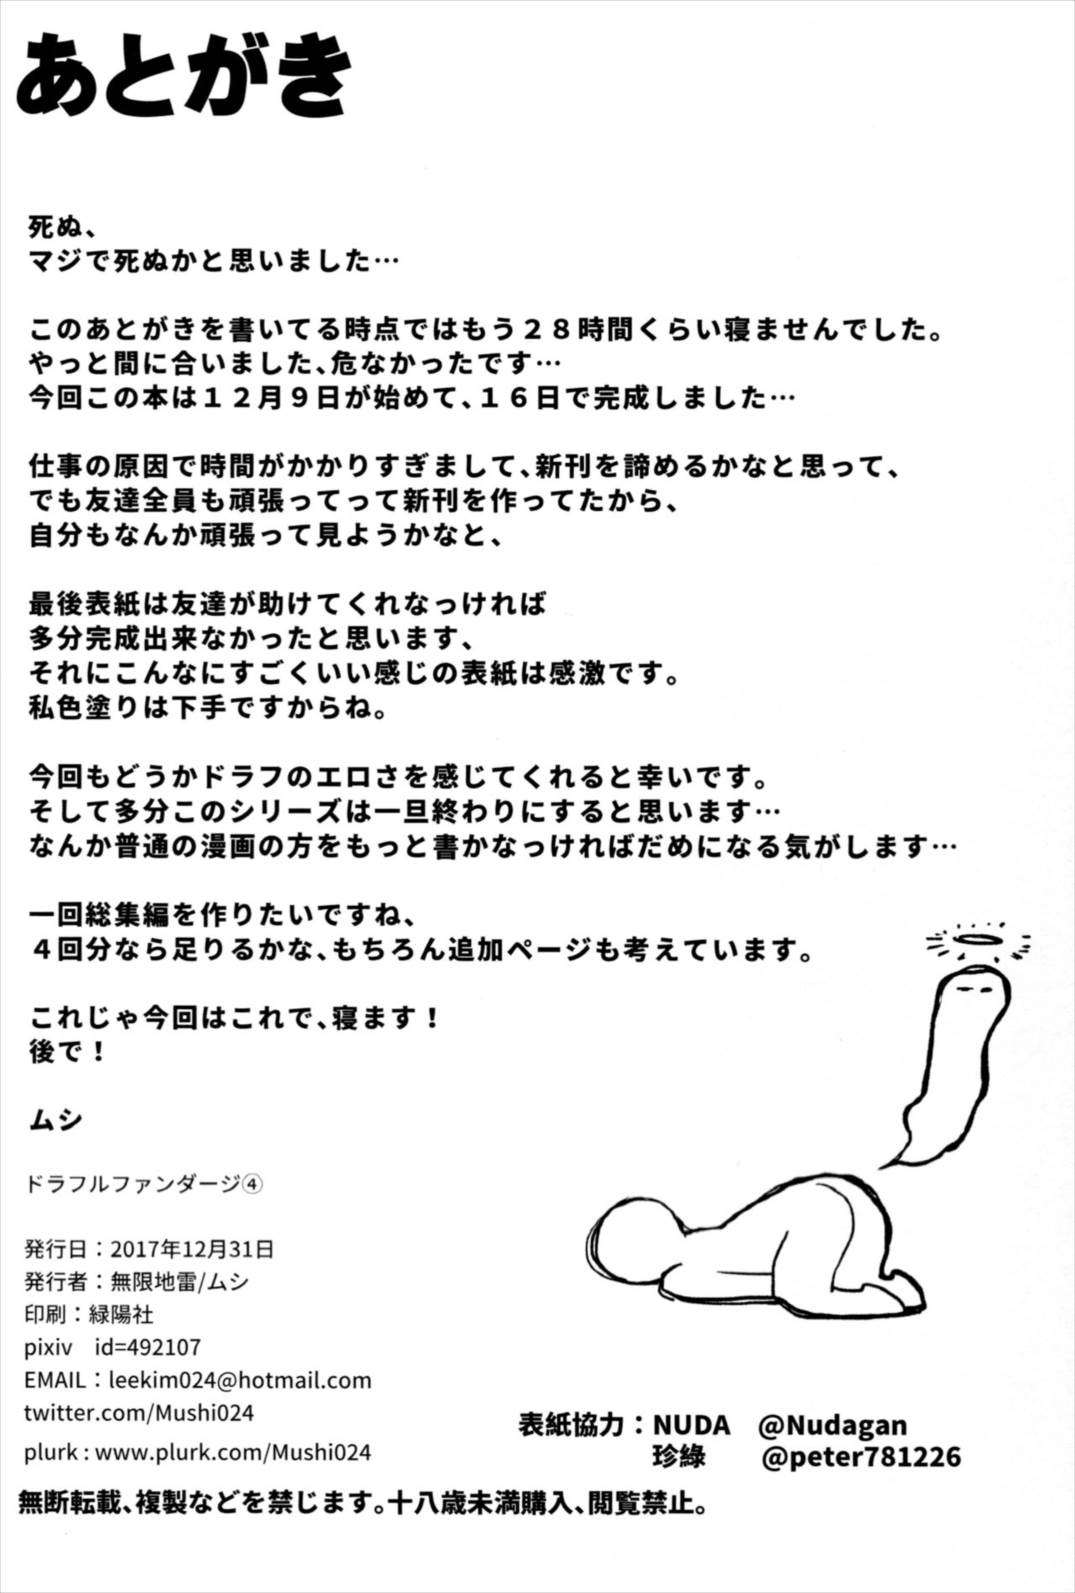 あとがき
死ぬ、
マジで死ぬかと思いました…
このあとがきを書いてる時点ではもう２８時間くらい寝ませんでした。
やっと間に合いました、危なかったです…
今回この本は１２月９日が始めて、１６日で完成しました…
仕事の原因で時間がかかりすぎまして、新刊を諦めるかなと思って、
でも友達全員も頑張ってって新刊を作ってたから、
自分もなんか頑張って見ようかなと、
最後表紙は友達が助けてくれなっければ
多分完成出来なかったと思います、
それにこんなにすごくいい感じの表紙は感激です。
私色塗りは下手ですからね。
今回もどうかドラフのエロさを感じてくれると幸いです。
そして多分このシリーズは一旦終わりにすると思います…
なんか普通の漫画の方をもっと書かなっければだめになる気がします…
一回総集編を作りたいですね、
４回分なら足りるかな、もちろん追加ページも考えています。
これじゃ今回はこれで、寝ます！
後で！
ムシ
ドラフルファンダージ④
発行日：2017年12月31日
発行者：無限地雷/ムシ
印刷：緑陽社
pixiv　id=492107
EMAIL：leekim024@hotmail.com
twitter.com/Mushi024
plurk : www.plurk.com/Mushi024
表紙協力：NUDA　@Nudagan
珍綠　@peter781226
無断転載、複製などを禁じます。十八歳未満購入、閲覧禁止。